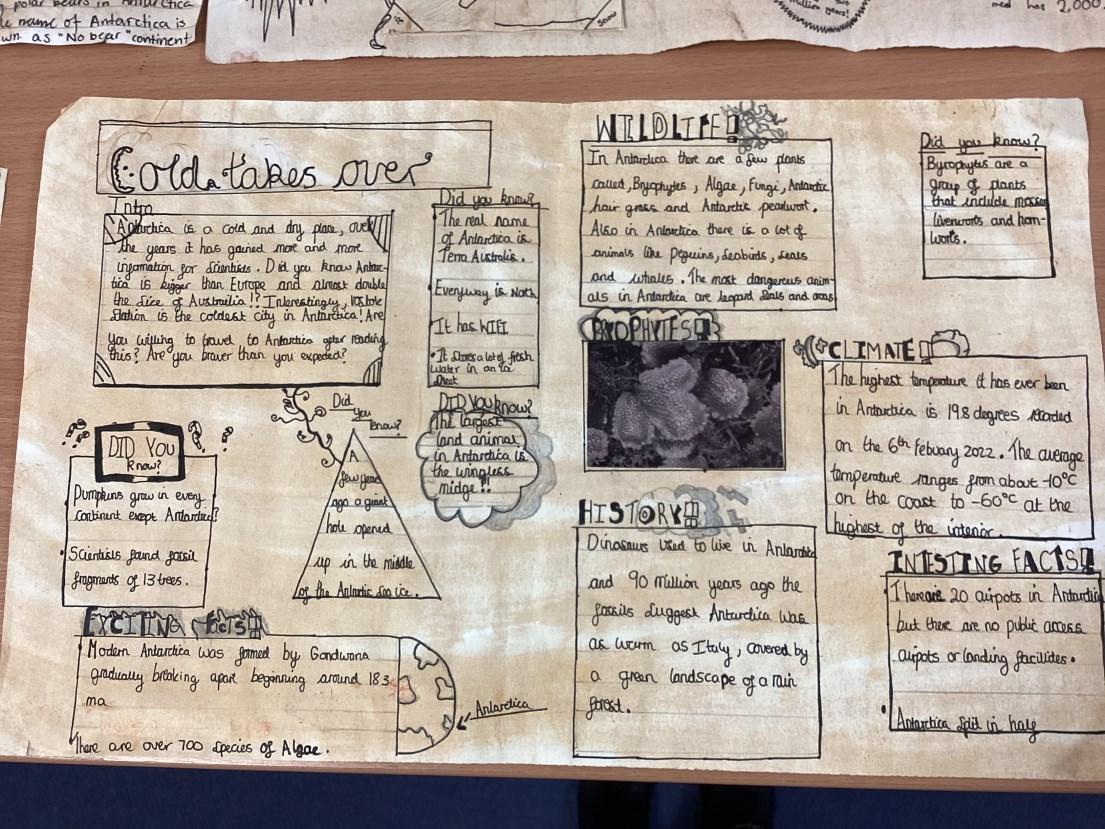 polar bears in Antarctica
name of Antarctica is
own as "No bear" continent
ice
Snow
million years!
med has 2,000
Cold takes over
Intro
Antarctica is a cold and dry place, over
the years it has gained more and more
infomation for Scientists. Did you know Antarc-
tica is bigger than Europe and almost double
the size of Austrailia!? Interestingly, Vostok
Station is the coldest city in Antarctica! Are
you willing to travel to Antarctica after reading
this? Are you braver than you expected?
Did you know?
The real name
of Antarctica is
Terra Australis.
Everyway is North
It has WIFI
It stores a lot of fresh
water in an ice
sheet
DID You know?
The largest
land animal
in Antarctica is
the wingless
midge!!
Did
you
know?
A
few years
ago a giant
hole opened
up in the middle
of the Antarctic sea ice.
DID YOU
know?
Pumpkins grow in every
continent except Antarctica!
Scientists found fossil
fragments of 13 trees.
EXCITING facts!!
Modern Antarctica was formed by Gondwana
gradually breaking apart beginning around 183
ma
There are over 700 species of Algae.
Antarctica
WILDLIFE!
In Antarctica there are a few plants
called, Bryophytes, Algae, Fungi, Antarctic
hair grass and Antarctic pearlwort.
Also in Antarctica there is a lot of
animals like Peguins, Seabirds, seals
and whales. The most dangerous anim-
als in Antarctica are legoard seals and orcas
Did you know?
Byrophytes are a
group of plants
that include mosses
liverworts and horn-
worts.
BRYOPHYTES!!
CLIMATE!
The highest temperature it has ever been
in Antarctica is 19.8 degrees recorded
on the 6th Febuary 2022. The average
temperature ranges from about -10°C
on the coast to -60°C at the
highest of the interior.
HISTORY!!
Dinosaurs used to live in Antarctica
and 90 million years ago the
fossils suggest Antarctica was
as warm as Italy, covered by
a green landscape of a rain
forest.
INTESTING FACTS!!
There are 20 airpots in Antarctica
but there are no public access
airpots or landing facilites.
Antarctica split in half